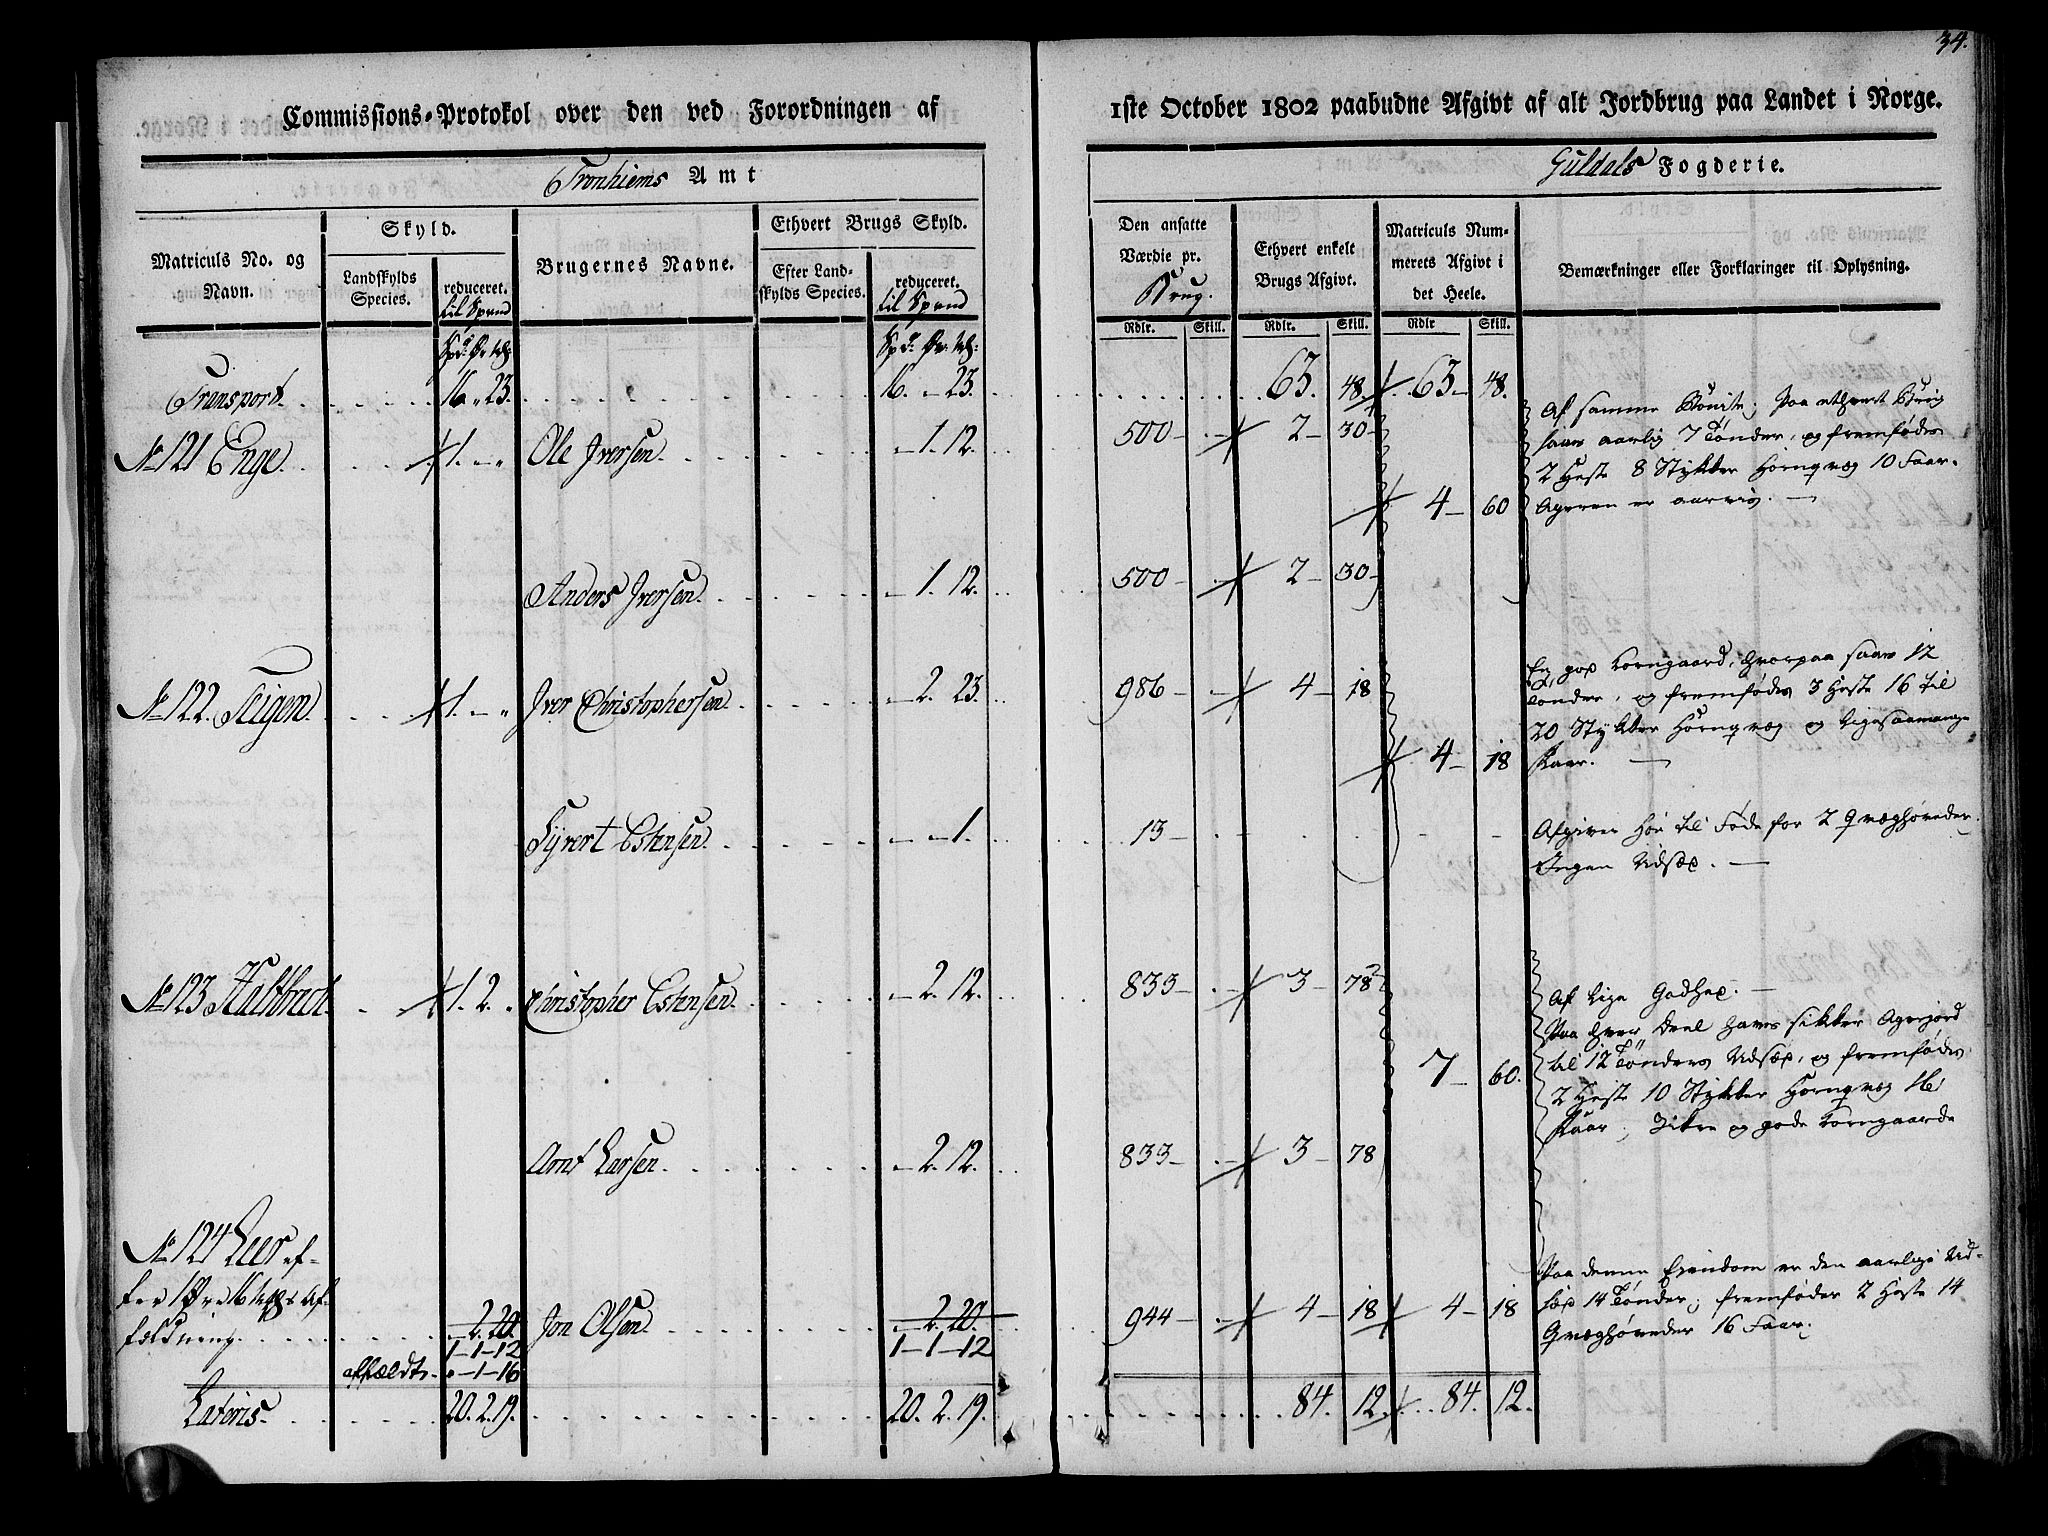 34.
Commissions-Protokol over den ved Forordningen af 1ste October 1802 paabudne Afgivt af alt Jordbrug paa Landet i Norge.
Tronhiems Amt
Guldals Fogderie.
Matriculs No. og Navn.
Skyld.
Landskylds Species.
reduceret.
til Spand
Brugernes Navne.
Ethvert Brugs Skyld.
Efter Landskylds Species.
reduceret.
til Spand
Den ansatte Værdie pr. Brug.
Ethvert enkelt Brugs Afgivt.
Matriculs Nummerets Afgivt i det Heele.
Bemærkninger eller Forklaringer til Oplysning.
Rdlr. Skill. Rdlr. Skill. Rdlr Skill.
Transport. 16 " 23. 16. - 23. 63. 48. 63 - 48.
No 121 Enge. 1. - " Ole Iversen. - 1. 12. 500 - . - 2 - 30 -
4 - 60
Af samme Bonite; Paa ethvert Brug
saaes aarlig 7 Tønder, og fremfødes
2 Heste 8 Stykker Hornqvæg 10 Faar.
Ageren er aarvis. -
Anders Iversen. - 1. 12. 500 - . - 2 - 30 -
No 122. Teigen. 1. - " Iver Christophersen. - 2. 23. 986 - . - 4 - 18
4 - 18
En god Korngaard, hvorpaa saaes 12
Tønder, og fremfødes 3 Heste 16 til
20 Stykker Hornqvæg og ligesaamange
Faar. -
Syvert Estensen. - - 1. 13 - . -
Afgiver Höe til Føde for 2 Qvæghøveder.
Ingen Udsæd. -
No 123 Kaltbrech. 1. 2. " Christopher Estensen. - 2. 12. 833 - . - 3 - 78
7 - 60.
Af lige Godhed. -
Paa hver Deel haves sikker Agerjord
til 12 Tønders Udsæd, og fremfødes
2 Heste 10 Stykker Hornqvæg 16
Faar; Sikre og gode Korngaarde
Arnt Larsen. - 2. 12. 833 - . - 3 - 78
No 124 Leer ef-
ter 1 Øre 16 Mkls Af-
fældning. - 2. 20. Jon Olsen. - 2. 20. 944 - . - 4 - 18 4 - 18
1 - 1 - 12 1 - 1 - 12
Paa denne Eiendom er den aarlige Ud-
sæd 14 Tønder; fremføder 2 Heste 14
Qvæghøveder 16 Faar.
affældt. " - 1 - 16
Lateris. 20. 2. 19. 20. 2. 19. 84. 12. 84. 12.